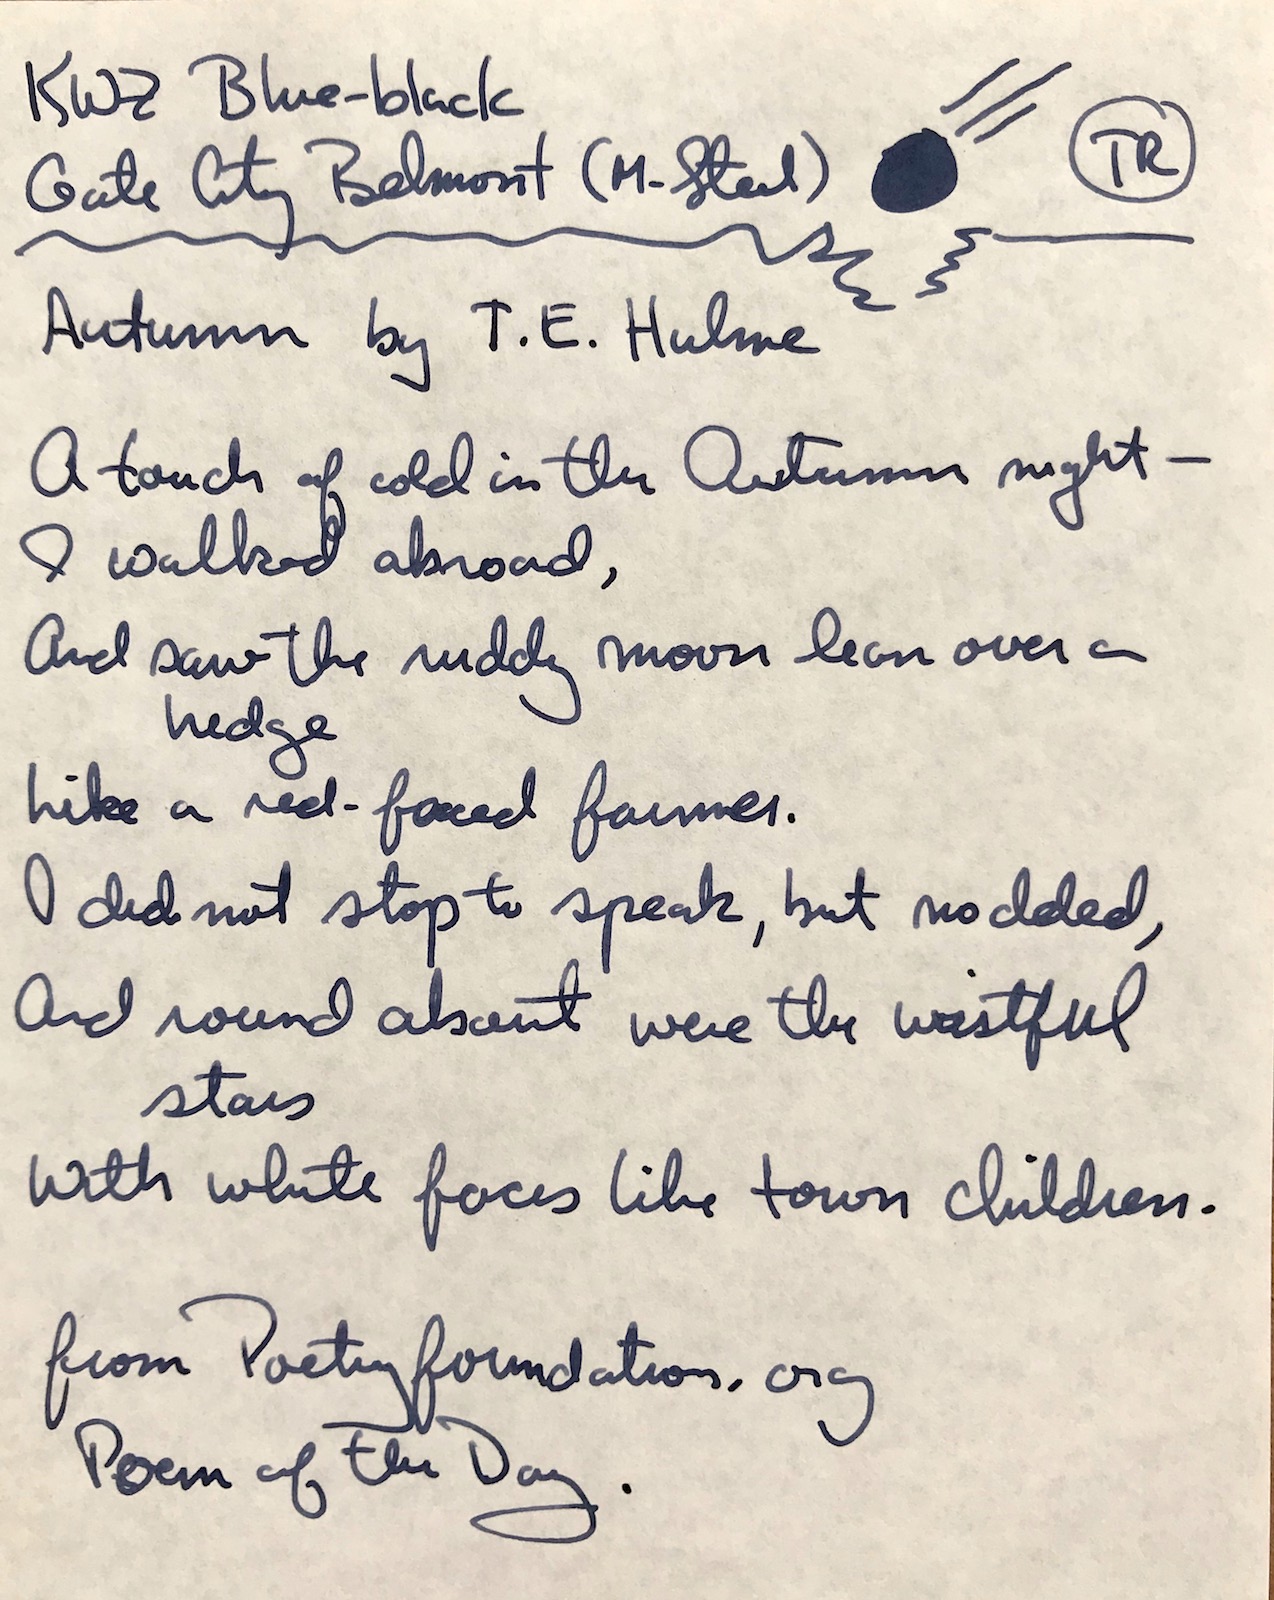 KWZ Blue-black
Gate City Belmont (M-Steel)
TR
Autumn by T.E. Hulme
A touch of cold in the Autumn night –
I walked abroad,
And saw the ruddy moon lean over a
hedge
Like a red-faced farmer.
I did not stop to speak, but nodded,
And round about were the wistful
stars
With white faces like town children.
from Poetryfoundation.org
Poem of the Day.